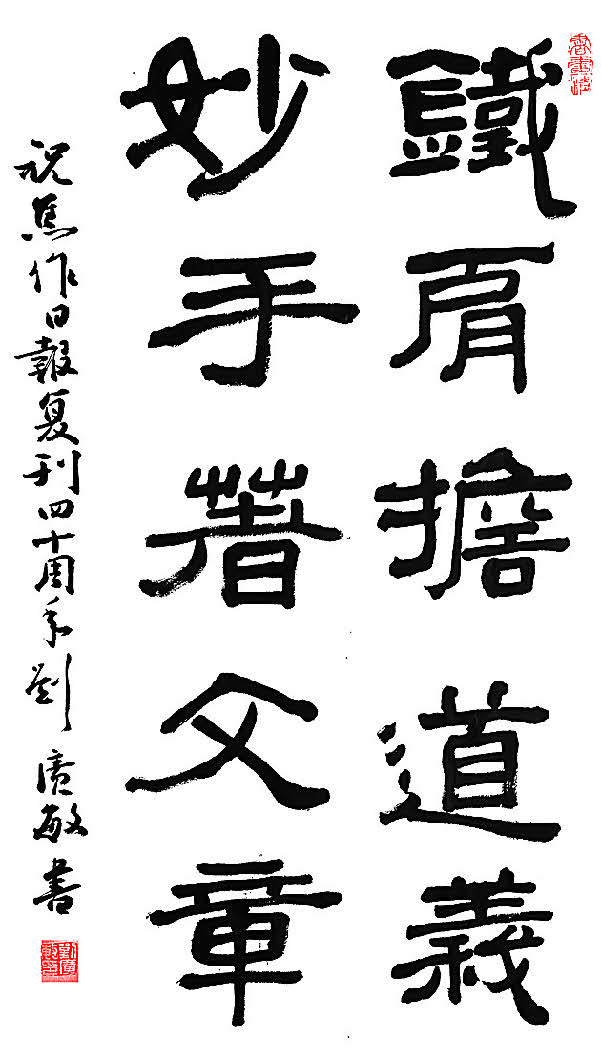 鐵肩擔道義
妙手著文章
祝焦作日報复刊四十周年劉廣敏書